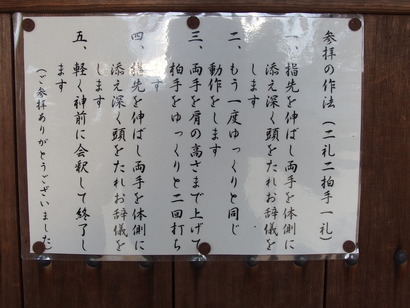 参拝の作法（二礼二拍手一礼）
一、指先を伸ばし両手を体側に
添え深く頭をたれお辞儀を
します
二、もう一度ゆっくりと同じ
動作をします
三、両手を肩の高さまで上げて
拍手をゆっくりと二回打ち
ます
四、指先を伸ばし両手を体側に
添え深く頭をたれお辞儀を
します
五、軽く神前に会釈して終了し
ます
（ご参拝ありがとうございました）